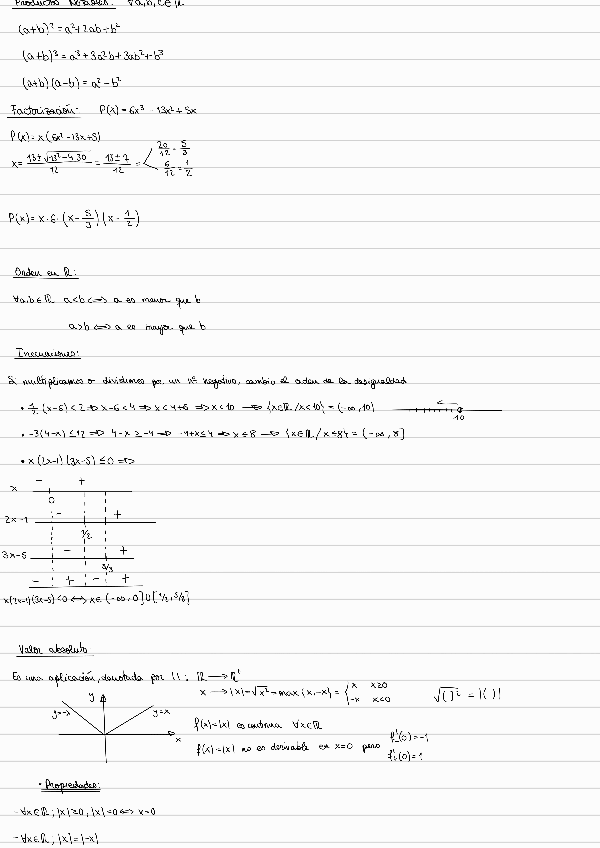 Productos Notables: ∀a,b,c∈ℝ
(a+b)² = a²+2ab+b²
(a+b)³ = a³+3a²b+3ab²+b³
(a+b)(a-b) = a²-b²
Factorización: P(x) = 6x³-13x²+5x
P(x) = x(6x²-13x+5)
x = 13±√13²-4·30 / 12 = 13±7 / 12 = < 20/12 = 5/3
6/12 = 1/2
P(x) = x·6·(x-5/3)(x-1/2)
Orden en ℝ:
∀a,b∈ℝ a<b ⟺ a es menor que b
a>b ⟺ a es mayor que b
Inecuaciones:
Si multiplicamos o dividimos por un nº negativo, cambia el orden de la desigualdad
• 1/2 (x-6) < 2 ⇒ x-6 < 4 ⇒ x < 4+6 ⇒ x < 10 ⇒ {x∈ℝ / x<10} = (-∞, 10)
10
• -3(4-x) ≤ 12 ⇒ 4-x ≥ -4 ⇒ -4+x ≤ 4 ⇒ x ≤ 8 ⇒ {x∈ℝ / x ≤ 8} = (-∞, 8]
• x(2x-1)(3x-5) ≤ 0 ⇒
x - +
0
2x-1 - +
1/2
3x-5 - +
5/3
- + - +
x(2x-1)(3x-5) ≤ 0 ⟺ x∈(-∞, 0]∪[1/2, 5/3]
Valor absoluto
Es una aplicación, denotada por | |: ℝ → ℝ⁺
x → |x| = √x² = max{x,-x} = { x x≥0
-x x<0
√( )² = |( )|
y
y=-x y=x
x
f(x)=|x| es continua ∀x∈ℝ
f(x)=|x| no es derivable en x=0 pero f'₋(0)=-1
f'₊(0)=1
• Propiedades:
- ∀x∈ℝ; |x|≥0, |x|=0 ⟺ x=0
- ∀x∈ℝ; |x|=|-x|